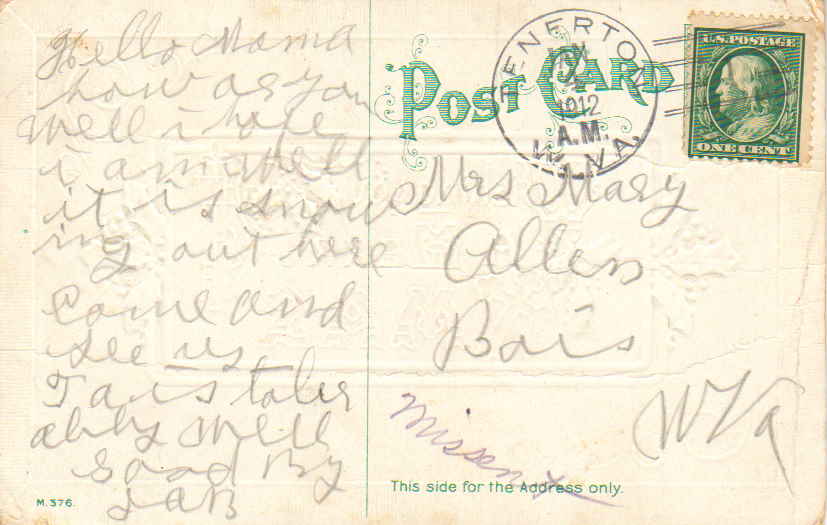 Hello Mama
how ar you
well i hope
i am well
it is snow
ing out here
Come and
see us
Ta is toler
ably well
Good By
POST CARD
ENERTO
1912
A.M.
W.VA.
U.S. POSTAGE
ONE CENT
Mrs Mary
Allen
Bois
W Va
Missent
This side for the Address only.
M.376.